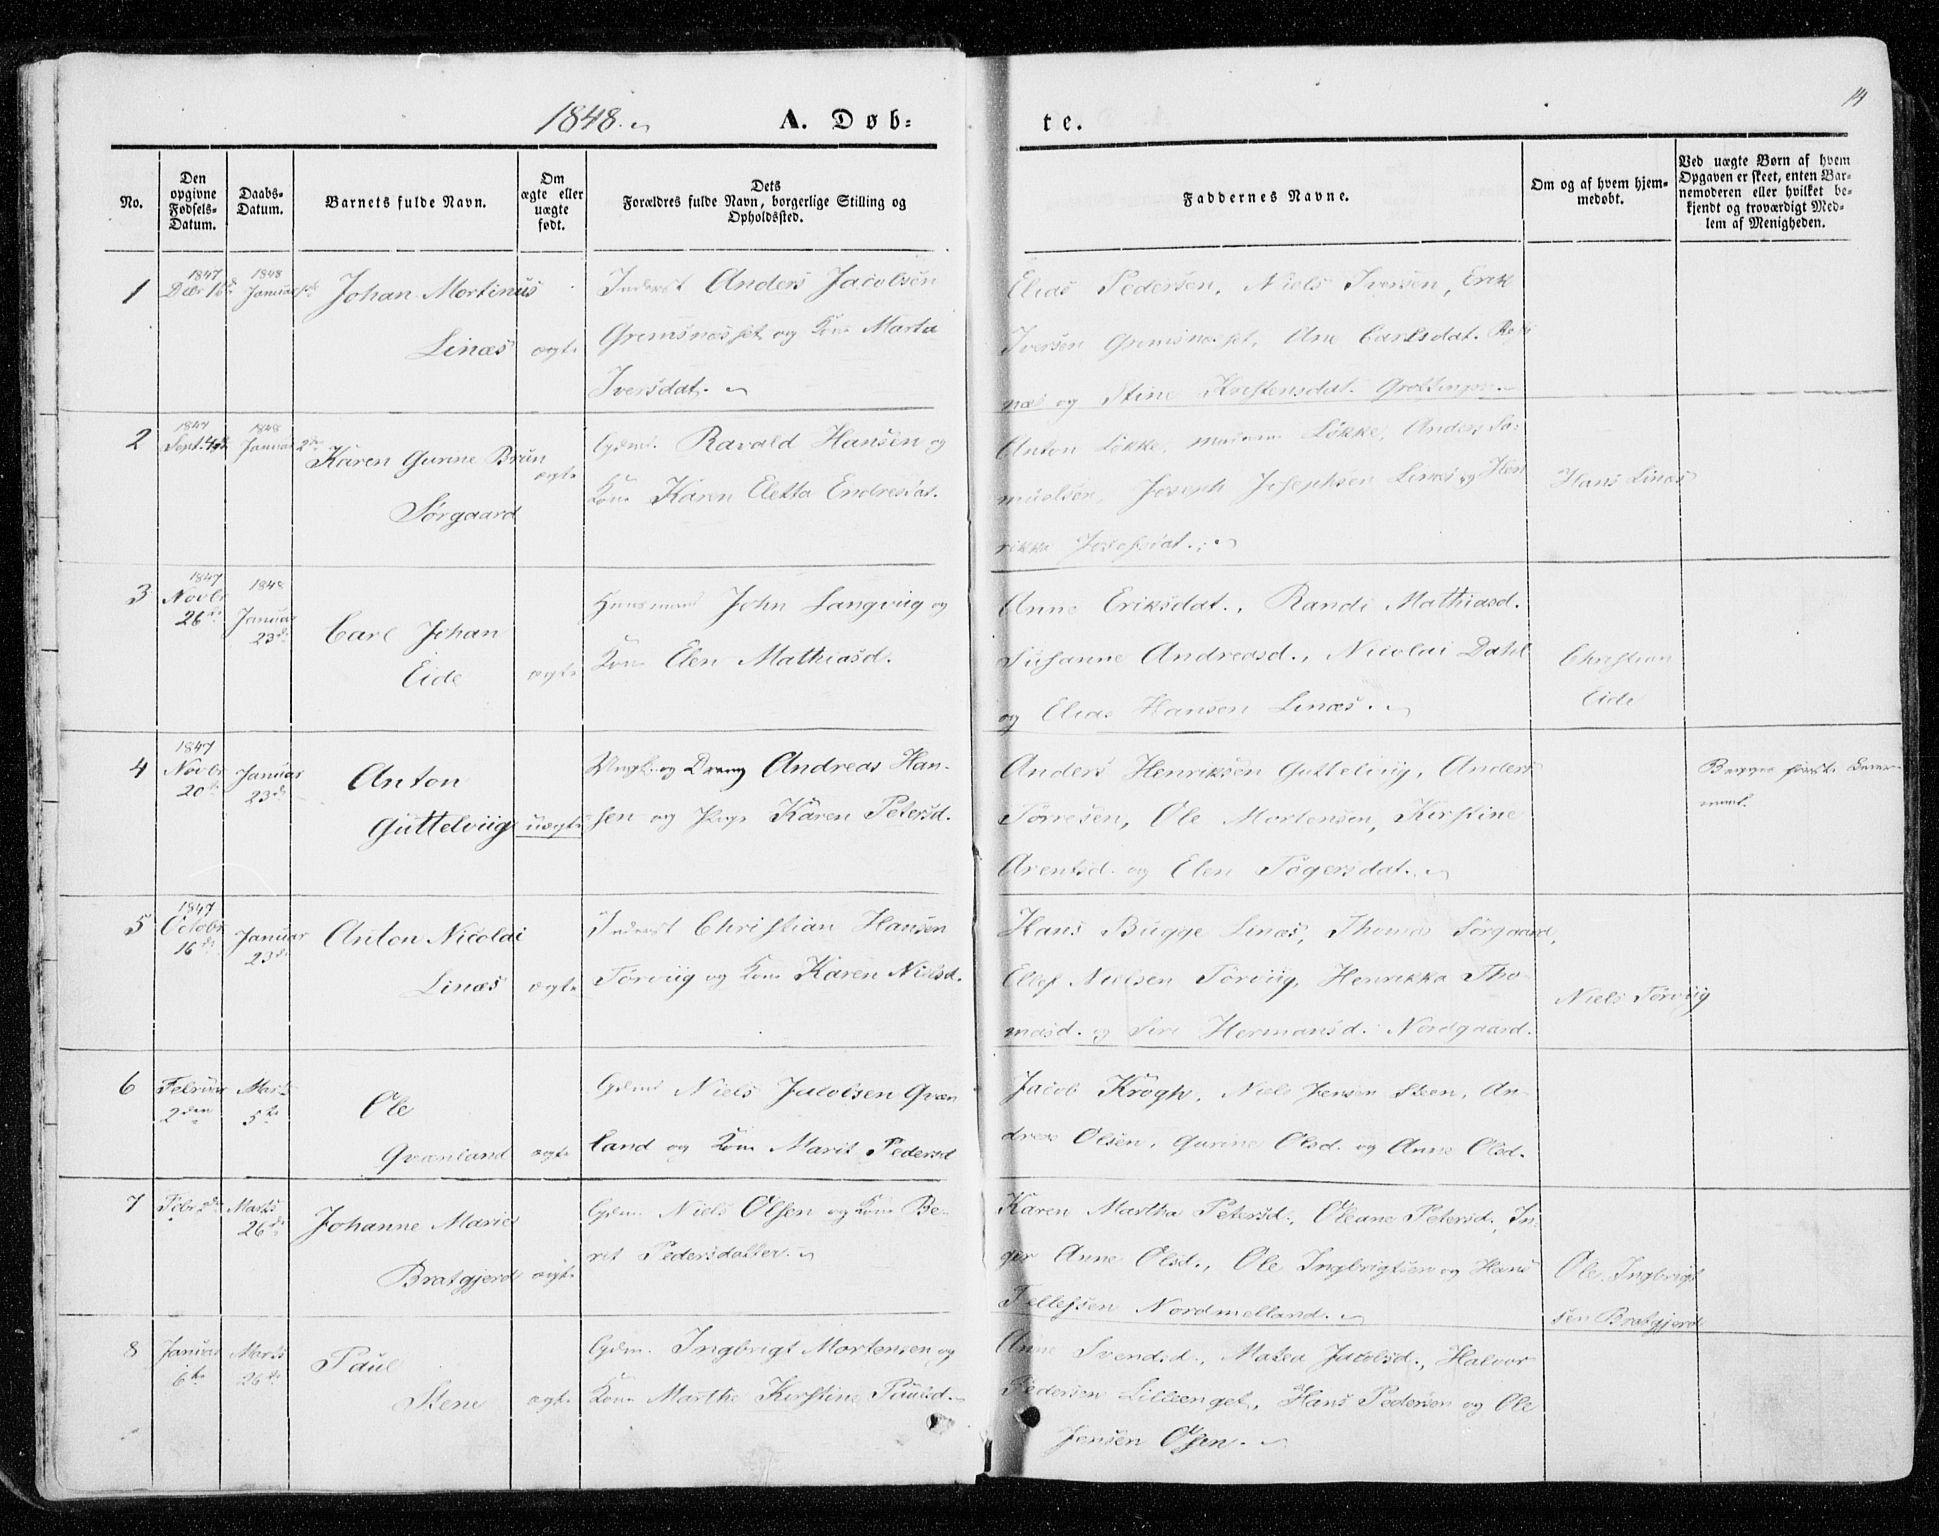 1848.
A. Døb:
te.
14
No.
Den opgivne Fødsels-Datum.
Daabs-Datum.
Barnets fulde Navn.
Om ægte eller uægte født.
Dets Forældres fulde Navn, borgerlige Stilling og Opholdssted.
Faddernes Navne.
Om og af hvem hjem-medøbt.
Ved uægte Børn af hvem Opgaven er skeet, enten Bar-nemoderen eller hvilket be-kjendt og troværdigt Med-lem af Menigheden.
1
1847
1848
Januar
Johan Martinus
Linæs
ægte
Inderst Anders Jacobsen
Gremsnæsset og Kone Marta
Iversdat.
Elias Pedersen, Niels Iversen, Erik
Iversen Gremsnæsset, Ane Carlsdat.
næs og Stine
2
1847
Sept. 4de
1848
Januar 2den
Karen Gurine Brun
Sørgaard
ægte
Gdmd. Ravald Hansen og
Kone Karen Eletta Endresdat.
Anton Løkke, Løkke, Anders Sa-
muelsen, Joseph Josephsen Linæs og Hen
rikke Josefsdat.
Hans Linæs
3
1847
Novbr
26de
1848
Januar
23de
Carl Johan
Eide
ægte
Huusmand John Langviig og
Kone Elen Mathiasd.
Anne Eriksdat., Randi Mathiasd.
Susanne Andreasd., Nicolai Dahl
og Elias Hansen Linæs.
Christian
Eide
4
1847
Novbr
20de
Januar
23de
Anton
Guttelviig
uægte
Ungk. og Dreng Andreas Han-
sen og Pige Karen Petersd.
Anders Henriksen Guttelviig, Anders
Tørresen, Ole Mortensen, Kirstine
Arentsd. og Elen Tøgersdat.
Begges første Leier-
maal.
5
1847
Octobr
16de
Januar
23de
Anton Nicolai
Linæs
ægte
Inderst Christian Hansen
Tørviig og Kone Karen Nielsd.
Hans Bugge Linæs, Thomas Sørgaard,
Ellef Nielsen Tørviig, Henrikka Tho-
masd. og Siri Hermansd. Nordgaard.
Niels Tørviig
6
Februar
2den
Marts
5te
Ole
Qvænland
ægte
Gdmd Niels Jacobsen Qvæn
land og Kone Marit Pedersd
Jacob Krogh, Niels Jensen Steen, An-
dreas Olsen, Gurine Olsd. og Anne Olsd.
7
Febr
Marts
26de
Johanne Marie
Bratgjerd
ægte
Gdm. Niels Olsen og Kone Be-
rit Pedersdatter.
Karen Martha Petersd., Oleane Petersd., In-
ger Anne Olsd., Ole Ingbrigtsen og Hans
Tellefsen Nordmelland.
Ole Ingbrigt
sen Bratgjerd
8
Januar
6te
Marts
26de
Paul
Stene
ægte
Gdm. Ingbrigt Mortensen og
Kone Marthe Kirstine Paulsd.
Anne Svendsd., Matea Jacobsd., Halvor
Pedersen Lilleenget, Hans Pedersen og Ole
Jensen Olsen.